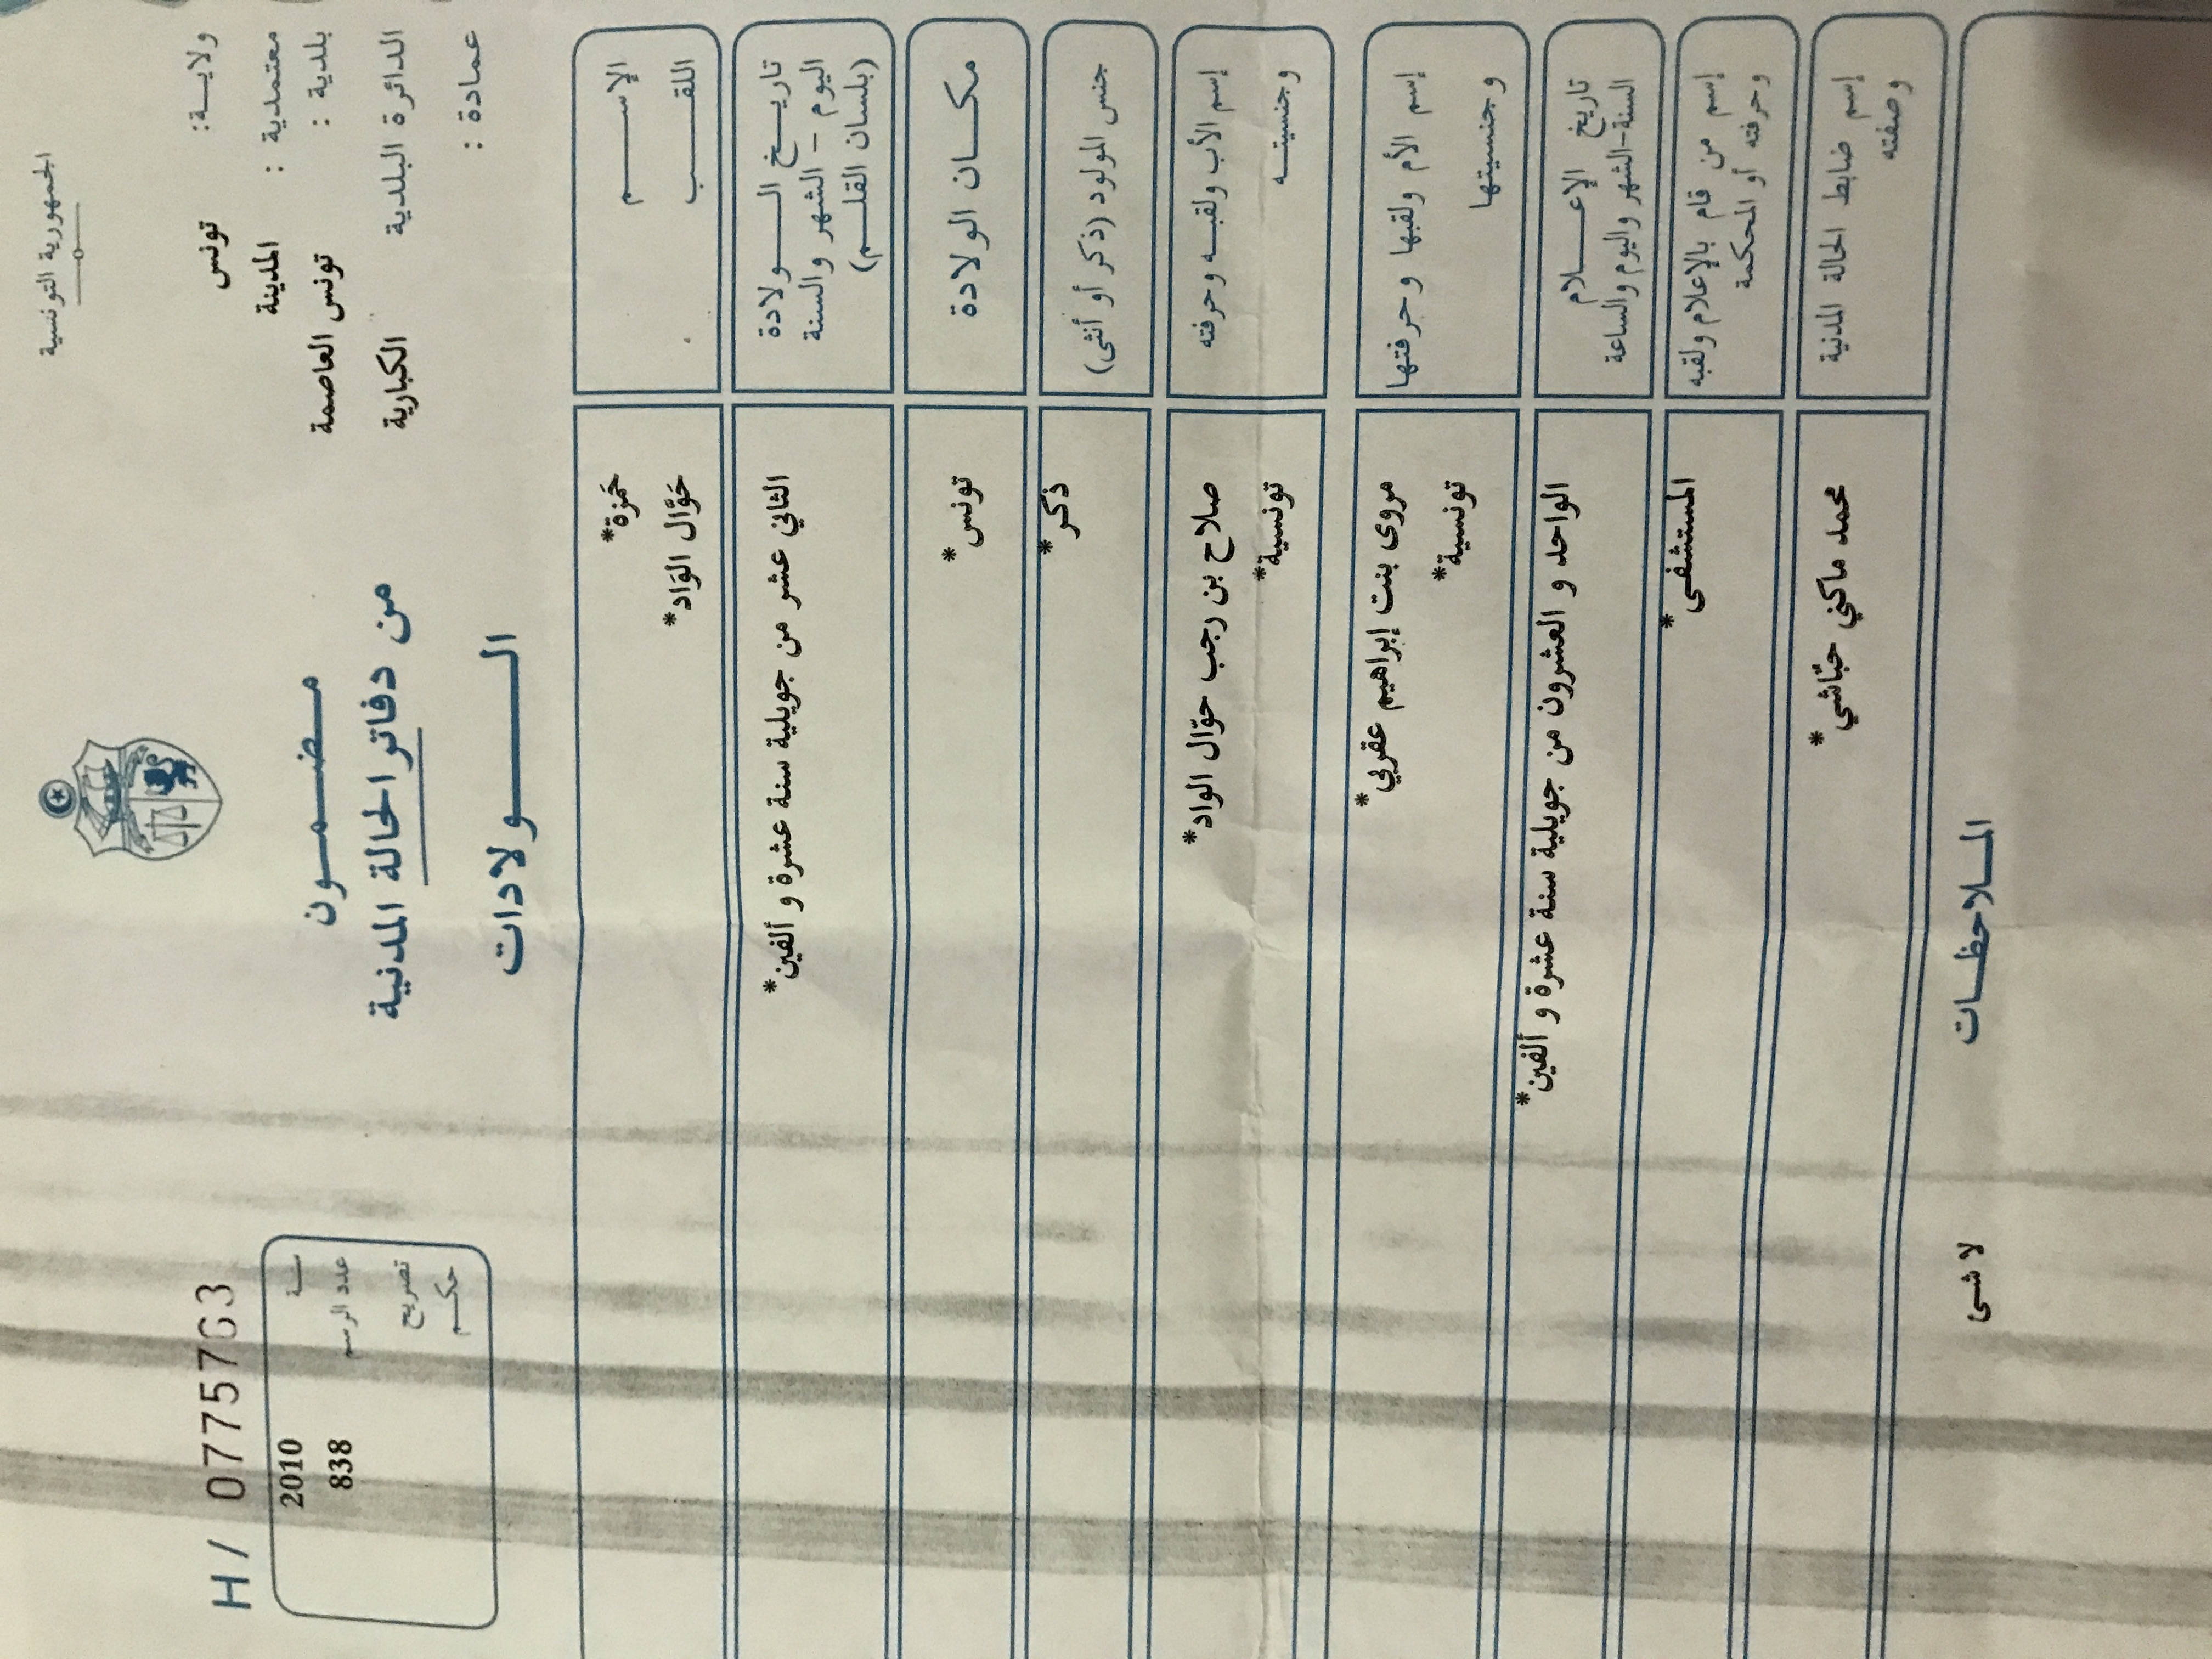 الجمهورية التونسية
ولايـة: تونس
معتمدية : المدينة
بلدية : تونس العاصمة
الدائرة البلدية الكبارية
عمادة :
H/ 0775763
سنة 2010
عدد الرسم 838
تصريح
حكم
مضمون
من دفاتر الحالة المدنية
الولادات
الإسم حَمزة*
اللقب حَوَّال الوَاد*
تاريخ الولادة
اليوم - الشهر والسنة
(بلسان القلم)
الثاني عشر من جويلية سنة عشرة و ألفين*
مكان الولادة تونس*
جنس المولود (ذكر أو أنثى) ذكر*
إسم الأب ولقبه وحرفته صلاح بن رجب حوّال الواد*
وجنسيته تونسية*
إسم الأم ولقبها وحرفتها مروى بنت إبراهيم عقربي*
وجنسيتها تونسية*
تاريخ الإعلام
السنة-الشهر واليوم والساعة
الواحد و العشرون من جويلية سنة عشرة و ألفين*
إسم من قام بالإعلام ولقبه المستشفى*
وحرفته أو المحكمة
إسم ضابط الحالة المدنية محمد ماكني حبّاشي*
وصفته
الملاحظات
لا شىء